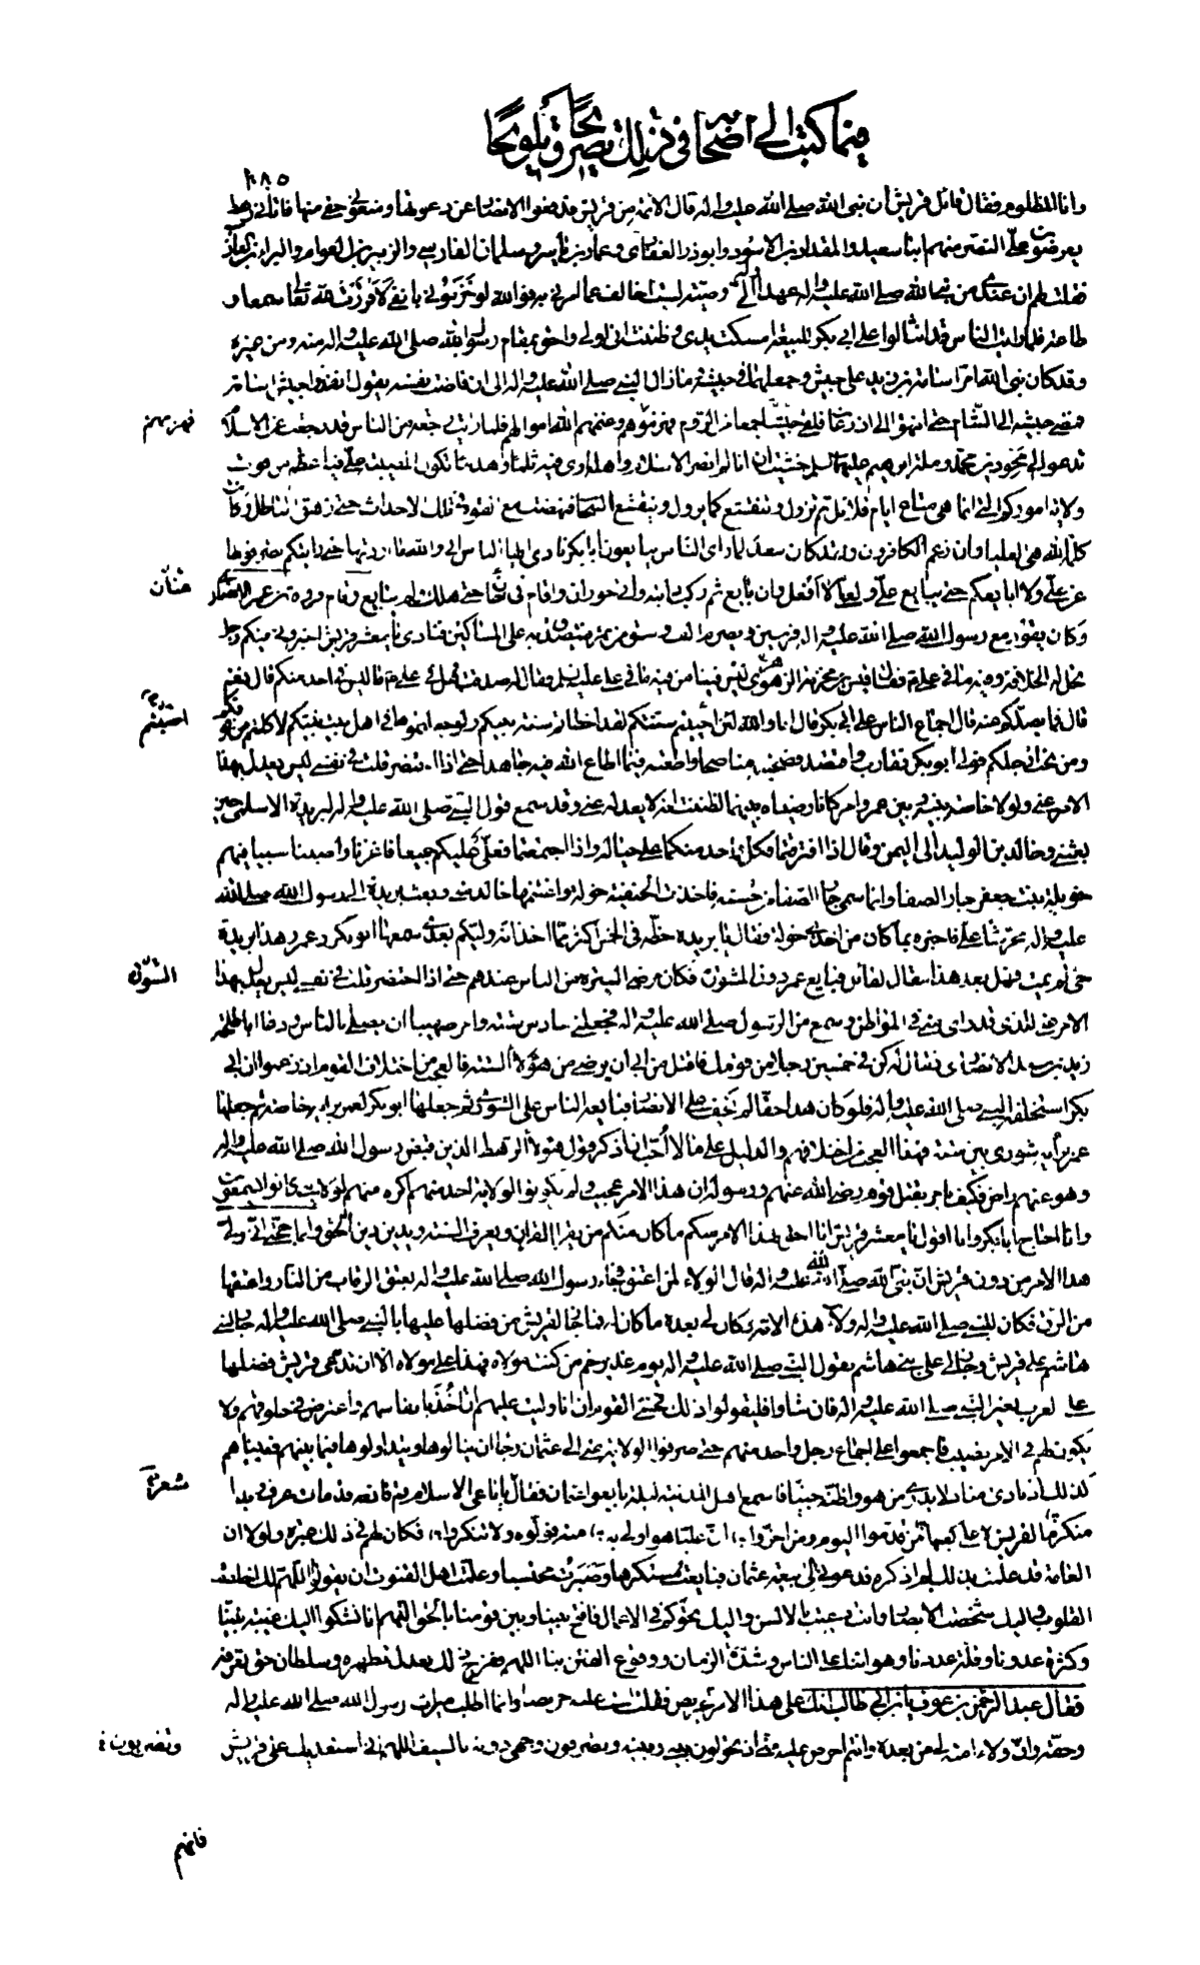 فيما كتب الى اصحابه في ذلك تصريحا وتلويحا
١٨٥
وانا المظلوم فقال قائل قريش ان نبي الله صلى الله عليه واله قال الائمة من قريش فدفعوا الانصار عن دعوتها ومنعوني حقي منها فاتاني رهط
يعرضون على النصر منهم ابنا سعيد والمقداد بن الاسود وابوذر الغفاري وعمار بن ياسر وسلمان الفارسي والزبير بن العوام والبراء بن عازب
فقلت لهم ان عندي من نبي الله صلى الله عليه واله عهدا وله الي وصية لست اخالفه عما امرني به فوالله لو خزموني بانفي لاقررت لله تعالى سمعا و
طاعة فلما رايت الناس قد انثالوا على ابي بكر للبيعة امسكت يدي وظننت اني اولى واحق بمقام رسول الله صلى الله عليه واله منه ومن غيره
وقد كان نبي الله امر اسامة بن زيد على جيش وجعلهما في جيشه وما زال النبي صلى الله عليه واله الى ان فاضت نفسه يقول انفذوا جيش اسامة
فمضى جيشه الى الشام حتى انتهوا الى اذرعات فلقى جيشا جمعا من الروم فهزموهم وغنمهم الله اموالهم فلما رايت راجعة من الناس قد رجعت عن الاسلام
فهزمهم
تدعو الى محو دين محمد وملة ابراهيم عليهما السلم خشيت ان انا لم انصر الاسلام واهله ارى فيه ثلما وهدما تكون المصيبة علي فيه اعظم من فوت
ولاية اموركم التي انما هي متاع ايام قلائل ثم تزول وتنقشع كما يزول وينقشع السحاب فنهضت مع القوم في تلك الاحداث حتى زهق الباطل وكانت
كلمة الله هي العليا وان زعم الكافرون ولقد كان سعد لما راى الناس يبايعون ابا بكر نادى ايها الناس اني والله ما اردتها حتى رايتكم تصرفونها
عن علي ولا ابايعكم حتى يبايع علي ولعلي لا افعل وان بايع ثم ركب دابته واتى حوران واقام في خان حتى هلك ولم يبايع وقام فروة بن عمر الانصاري
عنان
وكان يقود مع رسول الله صلى الله عليه واله فرسين ويصرم الف وسق من تمر فيتصدق به على المساكين فنادى يا معشر قريش اخبروني هل فيكم رجل
تحل له الخلافة وفيه ما في علي فقال قيس بن مخرمة الزهري ليس فينا من فيه ما في علي عليه السلم فقال له صدقت فهل في علي ما ليس في احد منكم قال نعم
قال فما يصدكم عنه قال اجتماع الناس على ابي بكر قال اما والله لئن اصبتم سنتكم لقد اخطاتم سنة نبيكم ولو جعلتموها في اهل بيت نبيكم لاكلتم من فوقكم
اصبتم
ومن تحت ارجلكم فولي ابو بكر فقارب واقتصد فصحبته مناصحا واطعته فيما اطاع الله فيه جاهدا حتى اذا احتضر قلت في نفسي ليس يعدل بهذا
الامر عني ولولا خاصة بينه وبين عمر وامر كانا رضياه بينهما لظننت انه لا يعدله عني وقد سمع قول النبي صلى الله عليه واله لبريدة الاسلمي حين
بعثني وخالد بن الوليد الى اليمن وقال اذا افترقتما فكل واحد منكما على حياله واذا اجتمعتما فعلي عليكم جميعا فاغرنا واصبنا سبيا فيهم
خويلة بنت جعفر جار الصفا وانما سمي جار الصفا من حسنه فاخذت الحنفية خولة واغتنمها خالد مني وبعث بريدة الى رسول الله صلى الله
عليه واله محرشا علي فاخبره بما كان من اخذي خولة فقال يا بريدة حظه في الخمس اكثر مما اخذ انه وليكم بعدي سمعها ابو بكر وعمر وهذا بريدة
حي لم يمت فهل بعد هذا مقال لقائل فبايع عمر دون المشورة فكان مرضي السيرة من الناس عندهم حتى اذا احتضر قلت في نفسي ليس يعدل بهذا
الشورى
الامر عني للذي قد راى مني في المواطن وسمع من الرسول صلى الله عليه واله فجعلني سادس ستة وامر صهيبا ان يصلي بالناس ودعا ابا طلحة
زيد بن سعد الانصاري فقال له كن في خمسين رجلا من قومك فاقتل من ابى ان يرضى من هؤلاء الستة فالعجب من اختلاف القوم اذ زعموا ان ابا
بكر استخلفه النبي صلى الله عليه واله فلو كان هذا حقا لم يخف على الانصار فبايعه الناس على الشورى ثم جعلها ابو بكر لعمر برايه خاصة ثم جعلها
عمر برايه شورى بين ستة فهذا العجب من اختلافهم والدليل على ما لا احب ان اذكر قول هؤلاء الرهط الذين قبض رسول الله صلى الله عليه واله
وهو عنهم راض فكيف يامر بقتل قوم رضي الله عنهم ورسوله ان هذا الامر عجيب ولم يكونوا لولاية احد منهم اكره منهم لولايتي كانوا يسمعون
وانا احاج ابا بكر وانا اقول يا معشر قريش انا احق بهذا الامر منكم ما كان منكم من يقرا القران ويعرف السنة ويدين دين الحق وانما حجتي اني ولي
هذا الامر من دون قريش ان نبي الله صلى الله عليه واله قال الولاء لمن اعتق فجاء رسول الله صلى الله عليه واله بعتق الرقاب من النار واعتقها
من الرق فكان للنبي صلى الله عليه واله ولاء هذه الامة وكان لي بعده ما كان له فما جاز لقريش من فضلها عليها بالنبي صلى الله عليه واله جاز لبني
هاشم على قريش وجاز لي على بني هاشم بقول النبي صلى الله عليه واله يوم غدير خم من كنت مولاه فهذا علي مولاه الا ان تدعي قريش فضلها
على العرب بغير النبي صلى الله عليه واله فان شاؤا فليقولوا ذلك فخشي القوم ان انا وليت عليهم ان اخذ بانفاسهم واعترض في حلوقهم ولا
يكون لهم في الامر نصيب فاجمعوا علي اجماع رجل واحد منهم حتى صرفوا الولاية عني الى عثمان رجاء ان ينالوها ويتداولوها فيما بينهم فبيناهم
كذلك اذ نادى مناد لا يدرى من هو واظنه جنيا فاسمع اهل المدينة ليلة بايعوا عثمان فقال يا ناعي الاسلام قم فانعه قد مات عرف وبدا
شعرة
منكر ما لقريش لا علا كعبها من قدموا اليوم ومن اخروا ان عليا هو اولى به منه فولوه ولا تنكروا فكان لهم في ذلك عبرة ولولا ان
العامة قد علمت بذلك لم اذكره فدعوني الى بيعة عثمان فبايعت مستكرها وصبرت محتسبا وعلمت اهل القنوت ان يقولوا اللهم لك اخلصت
القلوب واليك شخصت الابصار وانت دعيت بالالسن واليك تحوكم في الاعمال فافتح بيننا وبين قومنا بالحق اللهم انا نشكو اليك غيبة نبينا
وكثرة عدونا وقلة عددنا وهواننا على الناس وشدة الزمان ووقوع الفتن بنا اللهم ففرج ذلك بعدل تظهره وسلطان حق تعرفه
فقال عبد الرحمن بن عوف يا بن ابي طالب انك على هذا الامر لحريص فقلت لست عليه حريصا وانما اطلب ميراث رسول الله صلى الله عليه واله
وحقه وان ولاء امته لي من بعده وانتم احرص عليه مني اذ تحولون بيني وبينه وتصرفون وجهي دونه بالسيف اللهم اني استعديك على قريش
وتضربون
فانهم